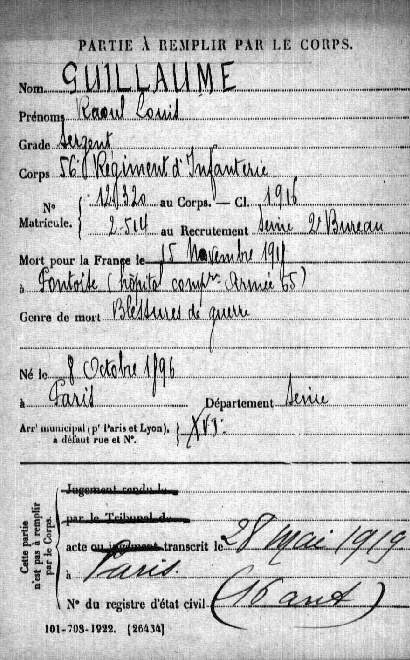 PARTIE À REMPLIR PAR LE CORPS.
Nom GUILLAUME
Prénoms Raoul Louis
Grade Sergent
Corps 56e Régiment d'Infanterie
N° Matricule. { 121320 au Corps. — Cl. 1916
2514 au Recrutement Seine 2e Bureau
Mort pour la France le 15 Novembre 191
à Pontoise (hôpital compre Armée 65)
Genre de mort Blessures de guerre
Né le 8 Octobre 1896
à Paris Département Seine
Arrt municipal (pr Paris et Lyon), à défaut rue et N°. } XVIe
Cette partie n'est pas à remplir par le Corps.
Jugement rendu le
par le Tribunal de
acte ou jugement transcrit le 28 mai 1919
à Paris.
N° du registre d'état civil (16 arrt)
101-708-1922. [26434]